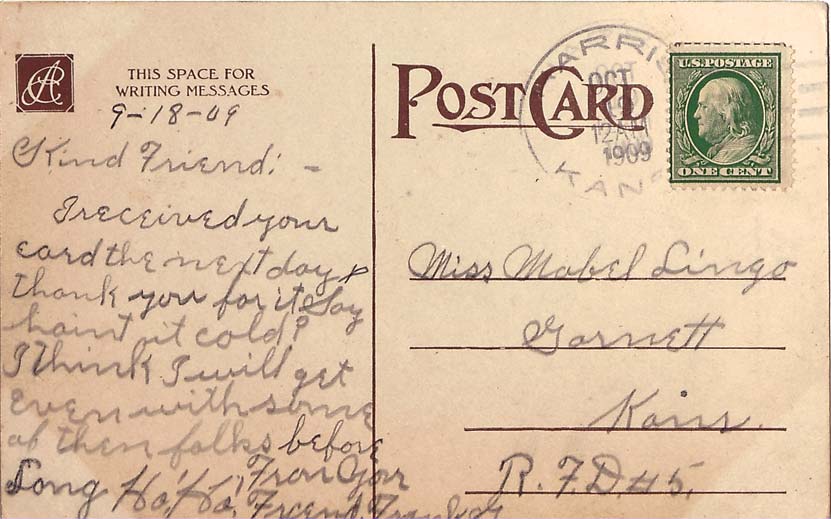 THIS SPACE FOR
WRITING MESSAGES
9-18-09
Kind Friend: -
I received your
card the next day &
thank you for it Say
haint it cold?
I think I will get
even with some
of them folks before
Long Ho, Ho, From Your
Friend,
POST CARD
OCT
12AM
1909
KANS
U.S. POSTAGE
ONE CENT
Miss Mabel Lingo
Garnett
Kans.
R.F.D. #5.